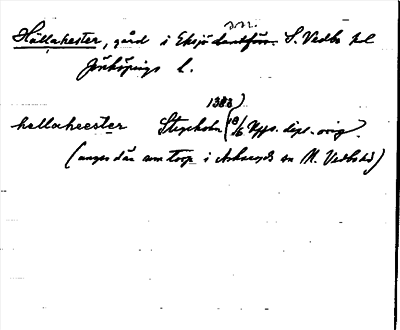 Hällahester, gård i Eksjö landsförs. S. Vedbo hd
Jönköpings l.
1383
hellaheester Stegeholm 18/6 Upps. dipl. orig.
(anges där som torp i Askeryds sn N. Vedbo hd)